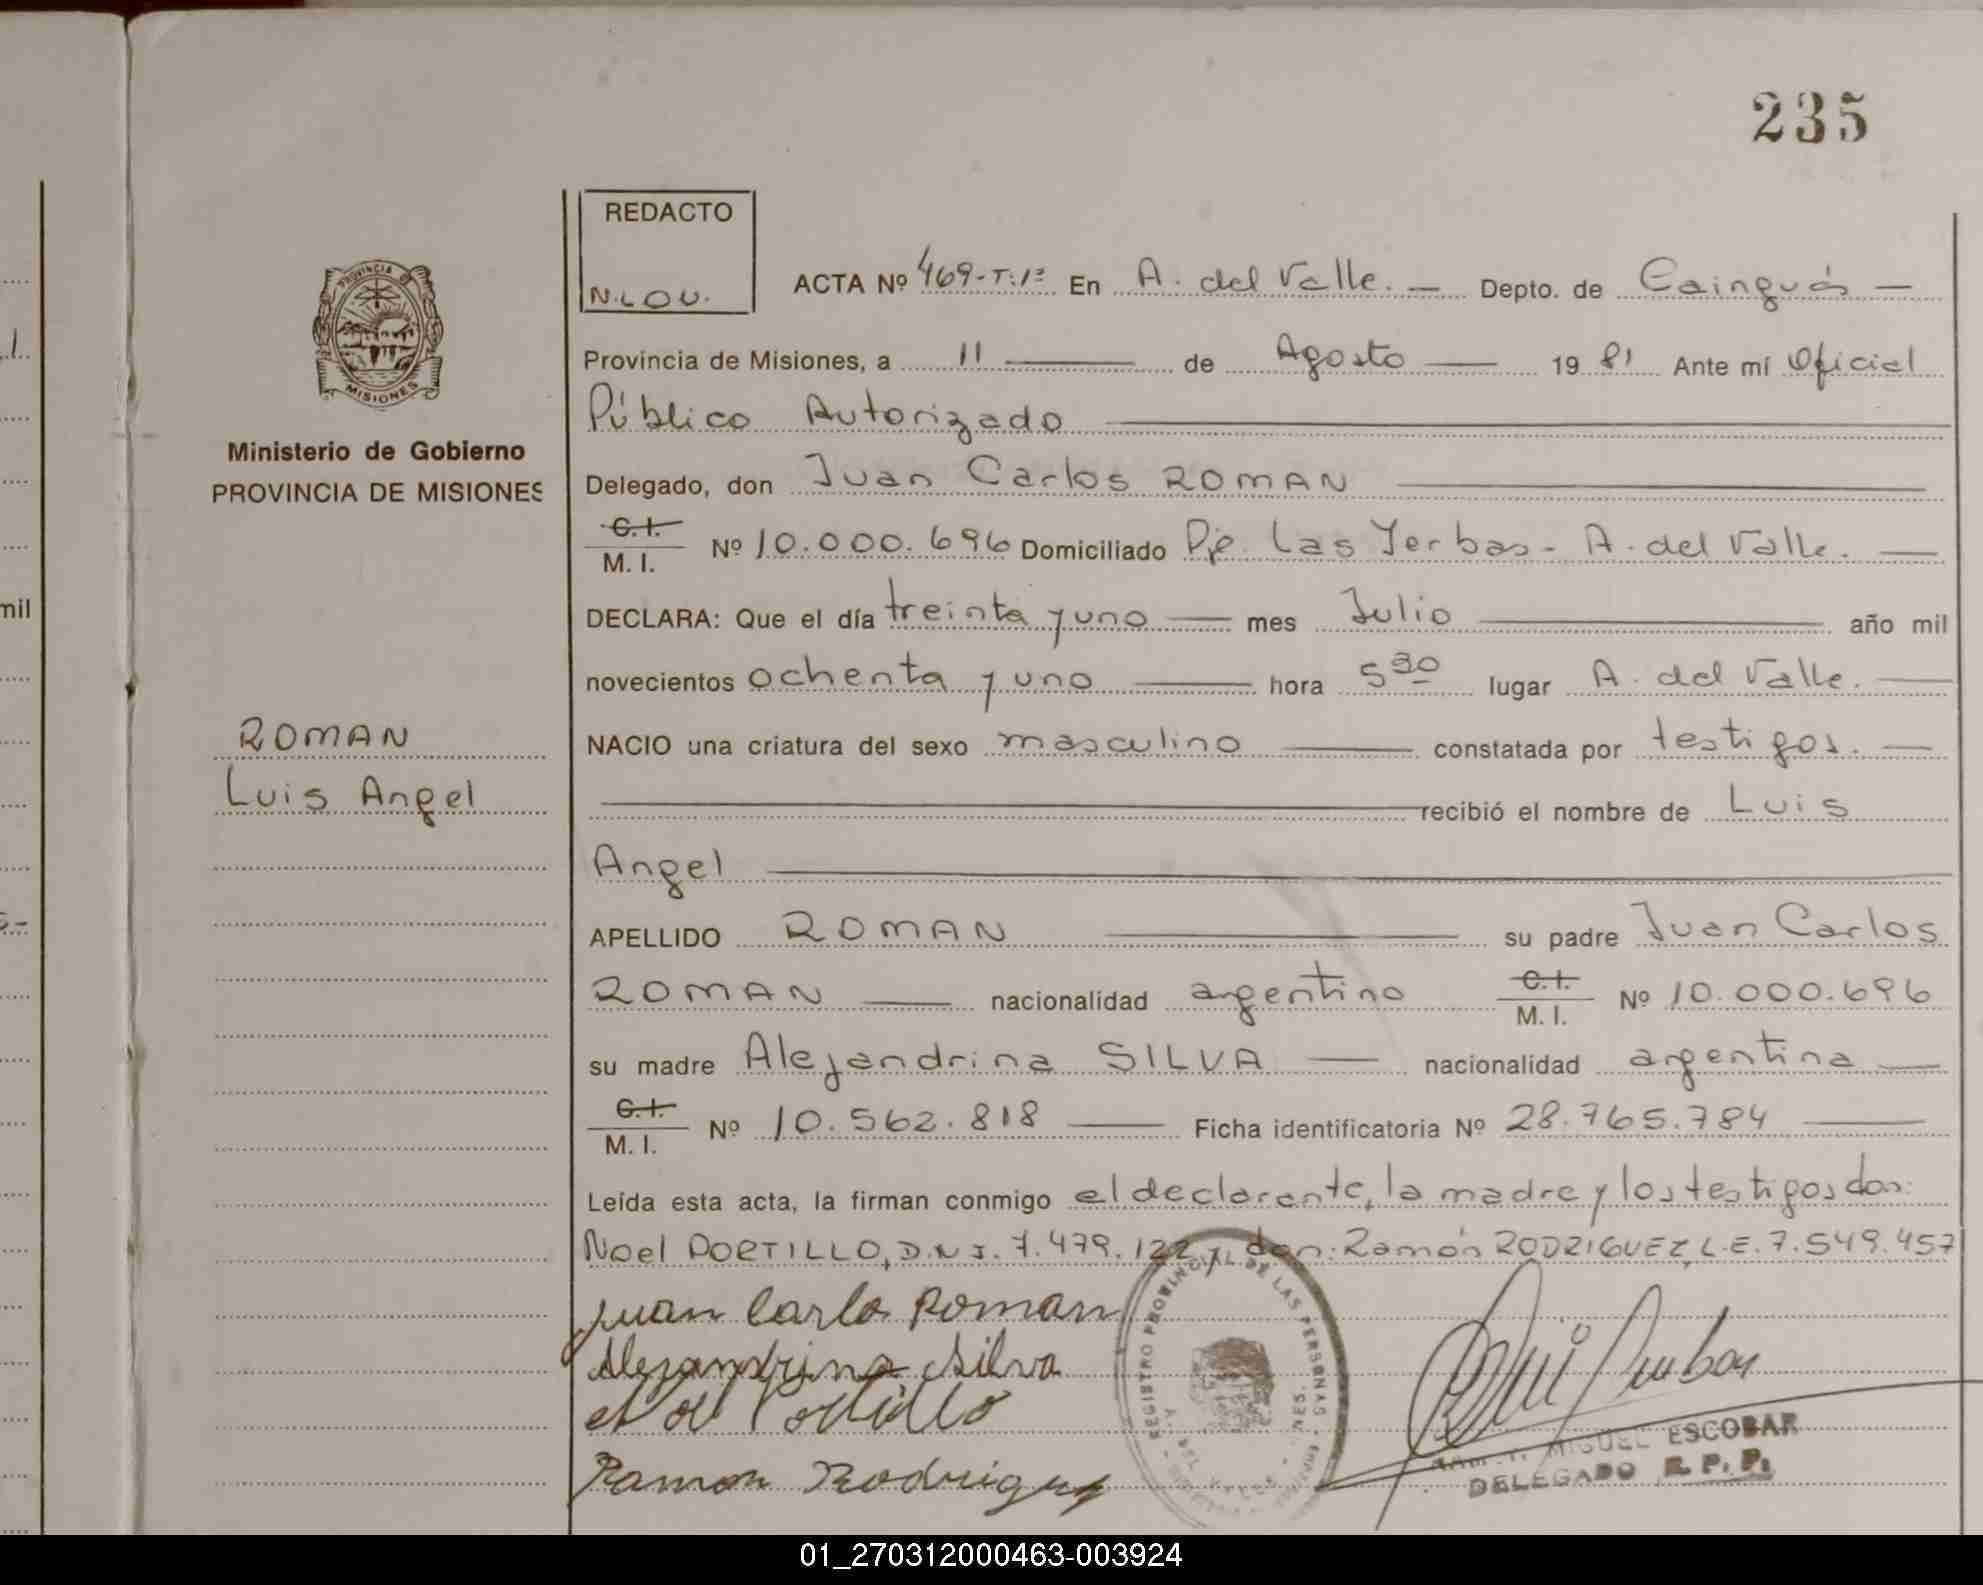 235
REDACTO
N.LOU.
ACTA Nº 469-T:1º En A. del Valle. — Depto. de Cainguás —
PROVINCIA
MISIONES
Provincia de Misiones, a 11 — de Agosto — 19 81 Ante mí Oficial
Público Autorizado
Ministerio de Gobierno
PROVINCIA DE MISIONES
Delegado, don Juan Carlos ROMAN
C.I.
M. I. Nº 10.000.696 Domiciliado Pje. Las Yerbas - A. del Valle. —
mil
DECLARA: Que el día treinta y uno — mes Julio — año mil
novecientos ochenta y uno — hora 5 30 lugar A. del Valle. —
ROMAN
NACIO una criatura del sexo masculino — constatada por testigos. —
Luis Angel
recibió el nombre de Luis
Angel
APELLIDO ROMAN — su padre Juan Carlos
ROMAN — nacionalidad argentino C.I.
M. I. Nº 10.000.696
su madre Alejandrina SILVA — nacionalidad argentina —
C.I.
M. I. Nº 10.562.818 — Ficha identificatoria Nº 28.765.784 —
Leída esta acta, la firman conmigo el declarante, la madre y los testigos don:
Noel PORTILLO, D.N.I. 7.479.122 y don: Ramón RODRIGUEZ, L.E. 7.549.457
Juan Carlo Roman
Alejandrina Silva
Noel Portillo
Ramon Rodriguez
REGISTRO PROVINCIAL DE LAS PERSONAS
MIGUEL ESCOBAR
DELEGADO R. P. P.
01_270312000463-003924